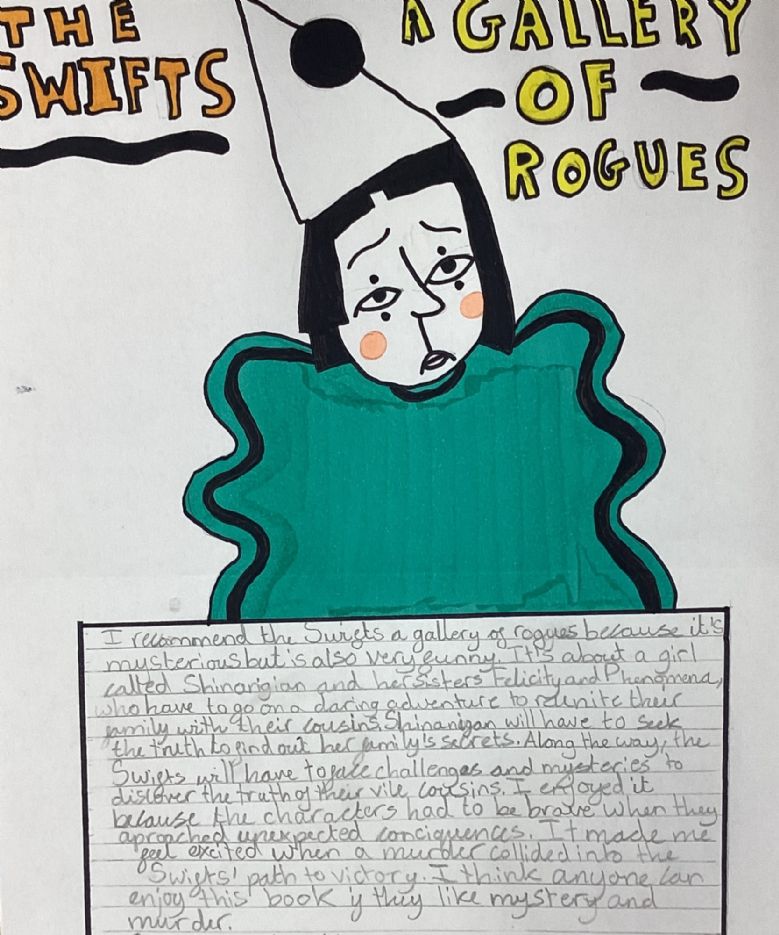 THE
SWIFTS
A GALLERY
OF
ROGUES
I recommend the Swifts a gallery of rogues because it's
mysterious but is also very funny. It's about a girl
called Shinanigian and her sisters Felicity and Phenomena,
who have to go on a daring adventure to reunite their
family with their cousins. Shinanigan will have to seek
the truth to find out her family's secrets. Along the way, the
Swifts will have to face challenges and mysteries to
discover the truth of their vile cousins. I enjoyed it
because the characters had to be brave when they
aproached unexpected conciquences. It made me
feel excited when a murder collided into the
Swifts' path to victory. I think anyone can
enjoy this book if they like mystery and
murder.